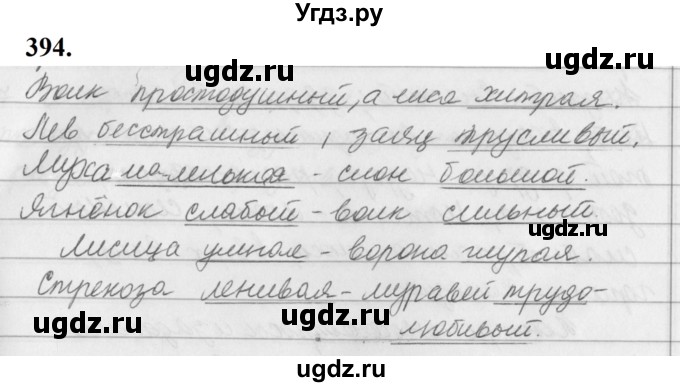 Угдз.ру
394.
Волк простодушный, а лиса хитрая.
Лев бесстрашный, заяц трусливый.
Муха маленькая - слон большой.
Ягнёнок слабый - волк сильный.
Лисица умная - ворона глупая.
Стрекоза ленивая - муравей трудо-
любивый.
ugdz.ru
ugdz.ru
ugdz.ru
ugdz.ru
ugdz.ru
ugdz.ru
ugdz.ru
ugdz.ru
ugdz.ru